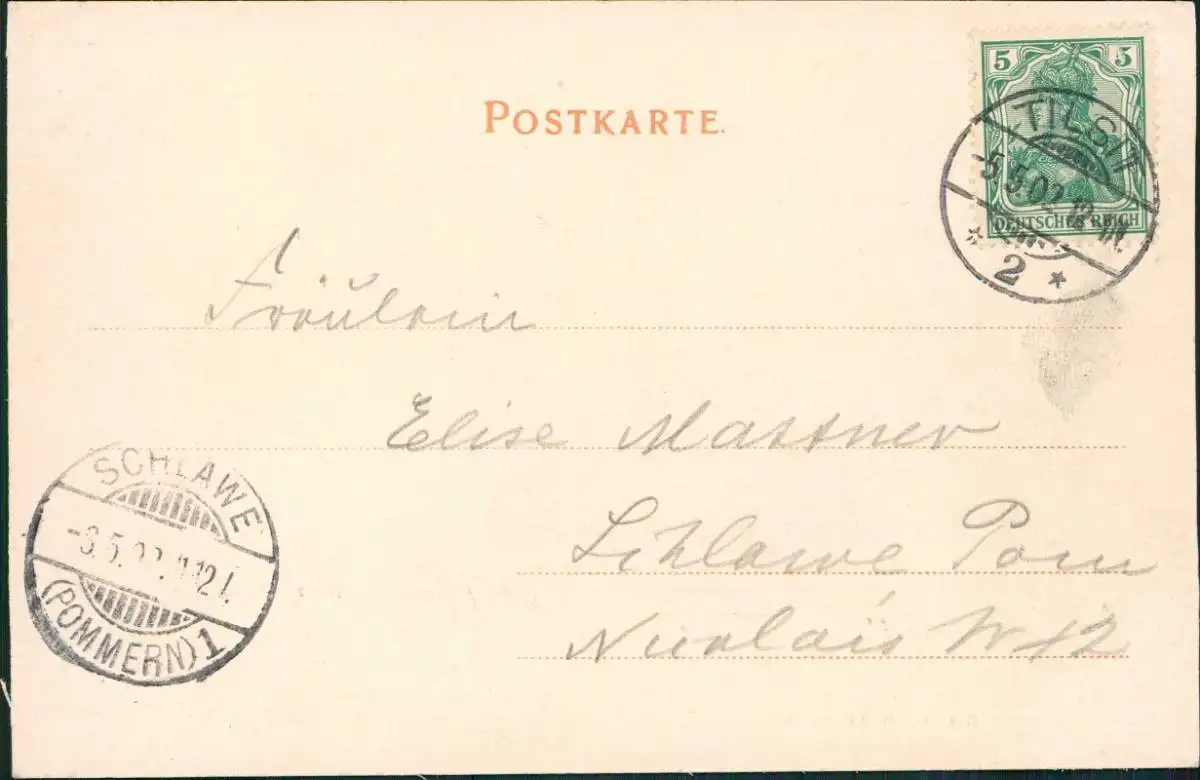 POSTKARTE.
5 5
DEUTSCHES REICH
TILSIT
-5.5.02.12-1N.
* 2 *
Fräulein
Elise Mattner
Schlawe Pom
Nicolais
SCHLAWE
-6.5.02.
(POMMERN) 1